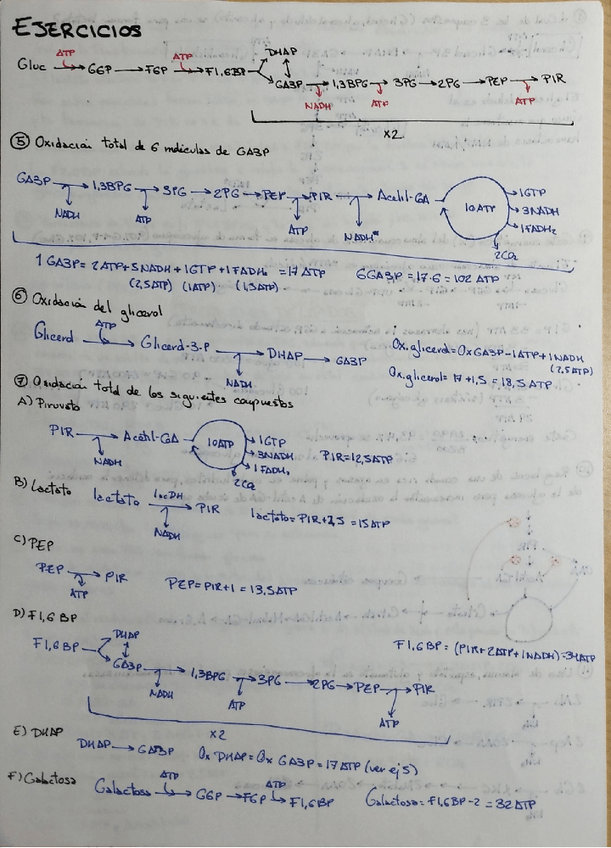 EJERCICIOS
ATP ATP DHAP
Gluc → G6P → F6P → F1,6BP GA3P → 1,3BPG → 3PG → 2PG → PEP → PIR
NADH ATP ATP
x2
⑤ Oxidación total de 6 moléculas de GA3P
GA3P → 1,3BPG → 3PG → 2PG → PEP → PIR → Acetil-GA 10ATP → 1GTP
→ 3NADH
→ 1FADH₂
NADH ATP ATP NADH* 2CO₂
1 GA3P = 2ATP + 5NADH + 1GTP + 1FADH₂ = 17 ATP 6GA3P = 17·6 = 102 ATP
(2,5ATP) (1ATP) (1,5ATP)
⑥ Oxidación del glicerol
ATP
Glicerol → Glicerol-3-P → DHAP → GA3P
NADH
Ox.glicerol = Ox GA3P - 1ATP + 1NADH
(2,5ATP)
Ox.glicerol = 17 + 1,5 = 18,5 ATP
⑦ Oxidación total de los siguientes compuestos
A) Piruvato
PIR → Acetil-GA 10ATP → 1GTP
→ 3NADH
→ 1FADH₂
NADH 2CO₂
PIR = 12,5ATP
B) Lactato
lactato lacDH → PIR
NADH
lactato = PIR + 2,5 = 15ATP
C) PEP
PEP → PIR
ATP
PEP = PIR + 1 = 13,5ATP
D) F1,6BP
DHAP
F1,6BP GA3P → 1,3BPG → 3PG → 2PG → PEP → PIR
NADH ATP ATP
x2
F1,6BP = (PIR + 2ATP + 1NADH) = 34ATP
E) DHAP
DHAP → GA3P Ox DHAP = Ox GA3P = 17ATP (ver ej 5)
F) Galactosa
ATP ATP
Galactosa → G6P → F6P → F1,6BP Galactosa = F1,6BP - 2 = 32ATP